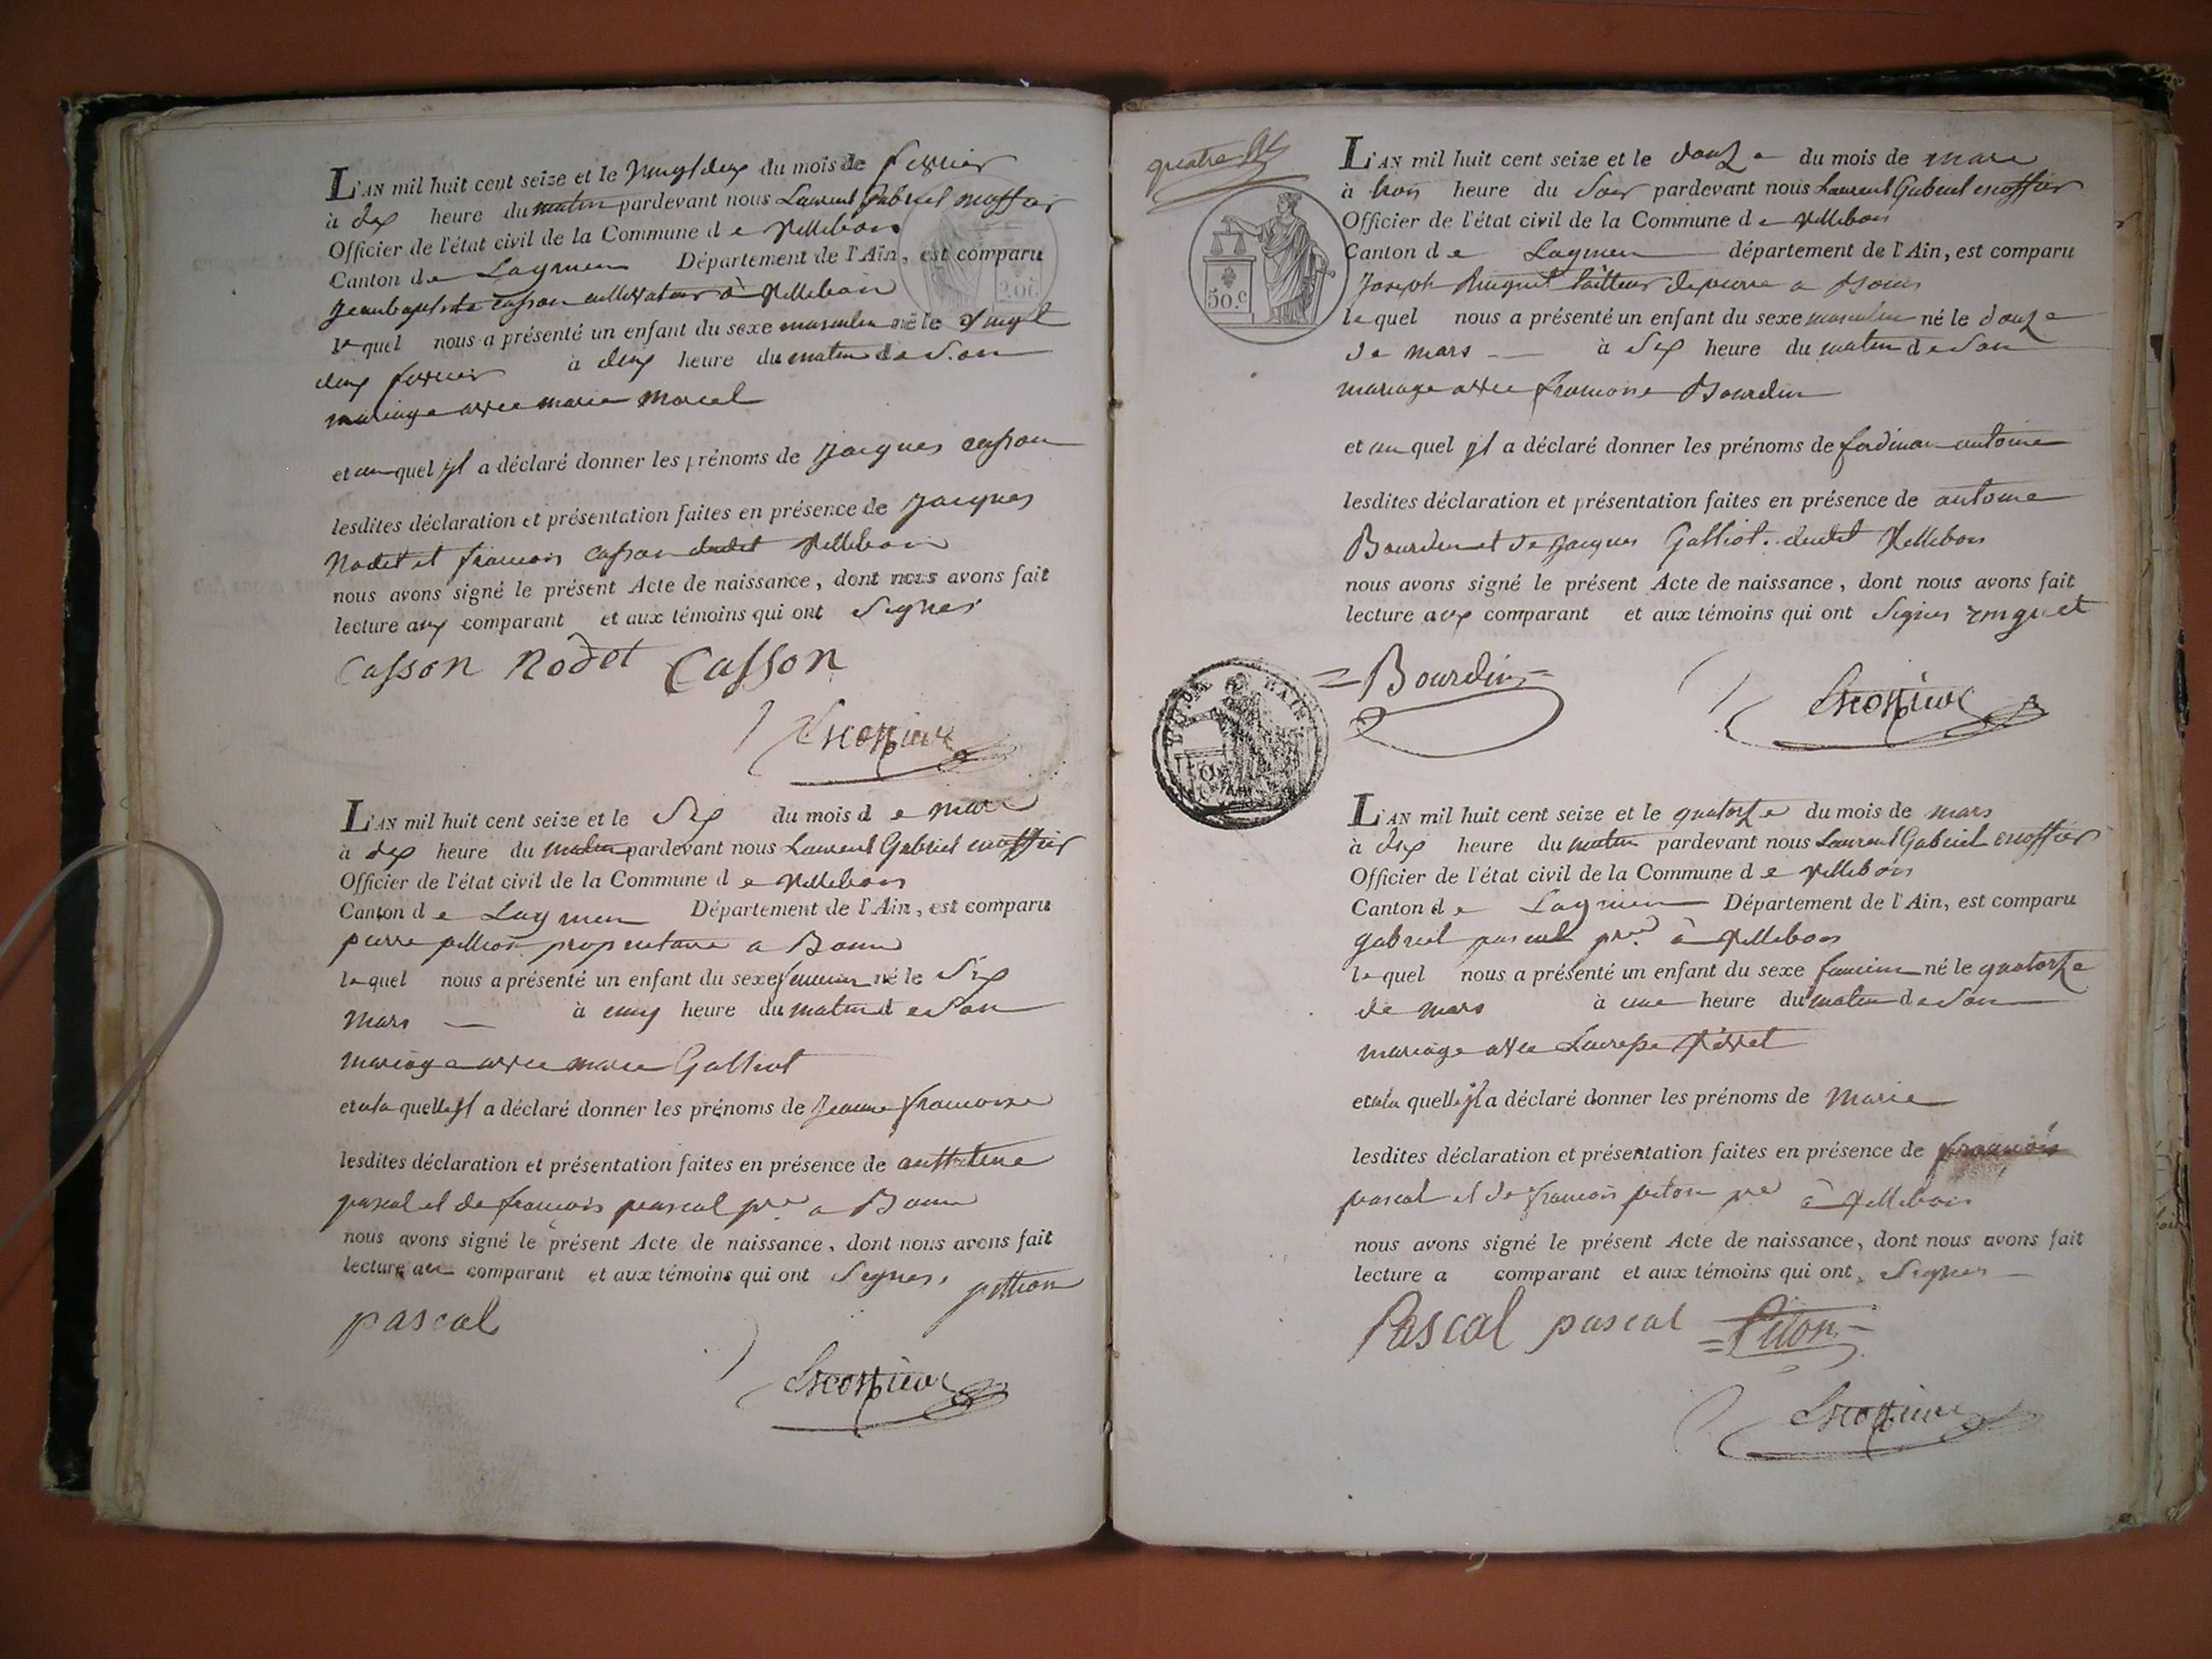 L'AN mil huit cent seize et le vingt deux du mois de fevrier
à dix heure du matin pardevant nous Laurent Gabriel
Officier de l'état civil de la Commune de Villebois
Canton de Lagnieu Département de l'Ain, est comparu
Jeanbaptiste Casson cultivateur à Villebois
lequel nous a présenté un enfant du sexe masculin né le vingt
deux fevrier à deux heure du matin de son
mariage avec marie morel
et au quel yl a déclaré donner les prénoms de jacques casson
lesdites déclaration et présentation faites en présence de jacques
Nodet et francois Casson dudit Villebois
nous avons signé le présent Acte de naissance, dont nous avons fait
lecture aux comparant et aux témoins qui ont signés
Casson Nodet Casson
L'AN mil huit cent seize et le six du mois de mars
à dix heure du matin pardevant nous Laurent Gabriel
Officier de l'état civil de la Commune de Villebois
Canton de Lagnieu Département de l'Ain, est comparu
pierre pittion propriétaire a Bouis
lequel nous a présenté un enfant du sexe feminin né le six
mars à cinq heure du matin de son
mariage avec marie Galliot
et a la quelle yl a déclaré donner les prénoms de Jeanne francoise
lesdites déclaration et présentation faites en présence de
pascal et de francois pascal pre a Bouis
nous avons signé le présent Acte de naissance, dont nous avons fait
lecture au comparant et aux témoins qui ont signés, pittion
pascal
quatre
50.c
L'AN mil huit cent seize et le douze du mois de mars
à trois heure du soir pardevant nous Laurent Gabriel
Officier de l'état civil de la Commune de Villebois
Canton de Lagnieu département de l'Ain, est comparu
Joseph Ringuet tailleur de pierre a Bouis
lequel nous a présenté un enfant du sexe masculin né le douze
de mars à six heure du matin de son
mariage avec francoise Bourdin
et au quel yl a déclaré donner les prénoms de ferdinan antoine
lesdites déclaration et présentation faites en présence de antoine
Bourdin et de jacques Galliot dudit Villebois
nous avons signé le présent Acte de naissance, dont nous avons fait
lecture aux comparant et aux témoins qui ont signés ringuet
Bourdin
L'AN mil huit cent seize et le quatorze du mois de mars
à dix heure du matin pardevant nous Laurent Gabriel
Officier de l'état civil de la Commune de Villebois
Canton de Lagnieu Département de l'Ain, est comparu
gabriel pascal pre à Villebois
lequel nous a présenté un enfant du sexe feminin né le quatorze
de mars à une heure du matin de son
mariage avec
et a la quelle yl a déclaré donner les prénoms de Marie
lesdites déclaration et présentation faites en présence de francois
pascal et de francois piton pre à Villebois
nous avons signé le présent Acte de naissance, dont nous avons fait
lecture a comparant et aux témoins qui ont signés
Pascal pascal Piton